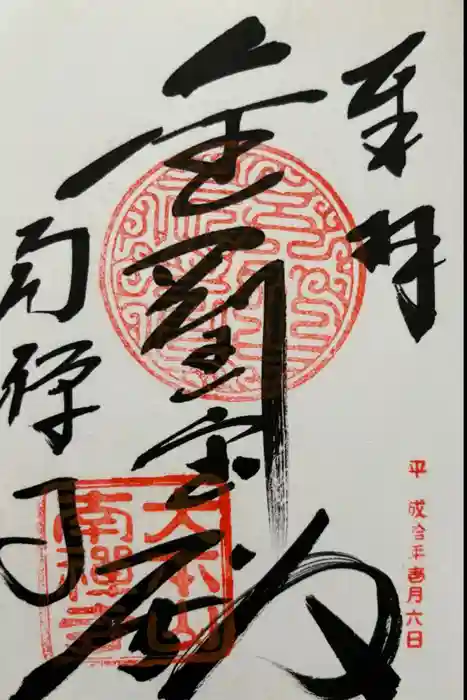 奉拝
金剛宝殿
南禅寺
大本山
南禪寺
平成拾年壱月六日